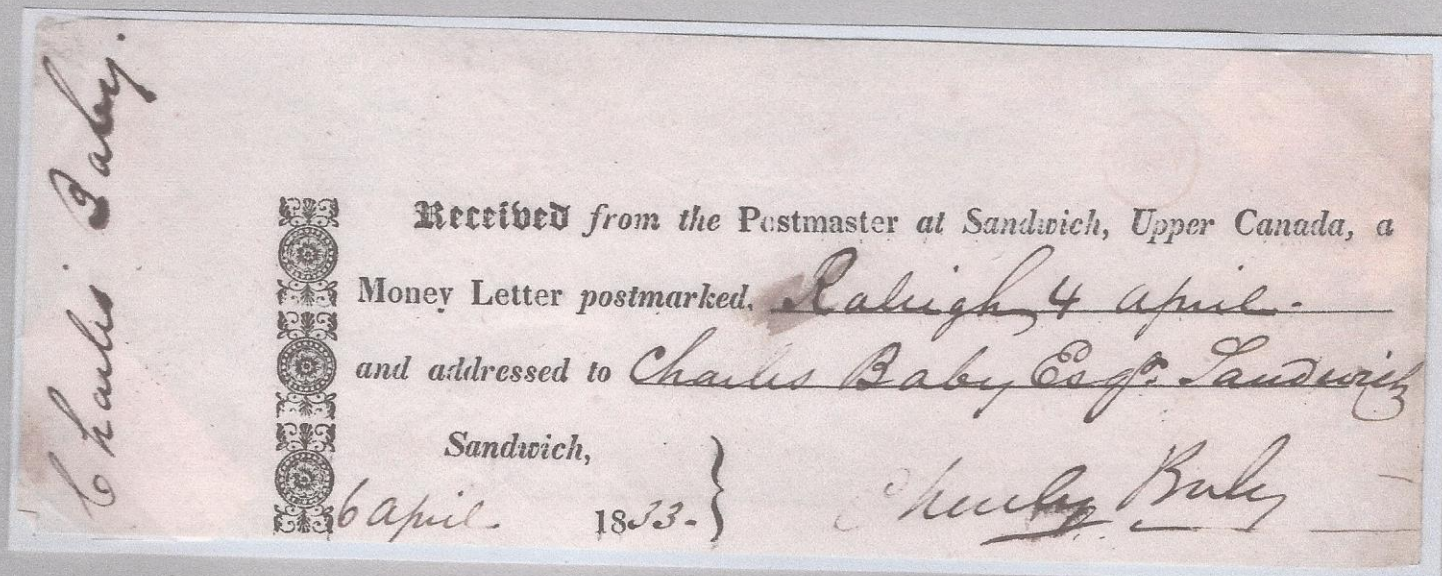 Charles Baby.
Received from the Postmaster at Sandwich, Upper Canada, a
Money Letter postmarked, Raleigh 4 April.
and addressed to Charles Baby Esqr. Sandwich
Sandwich,
6 April 1833.
Charles Baby